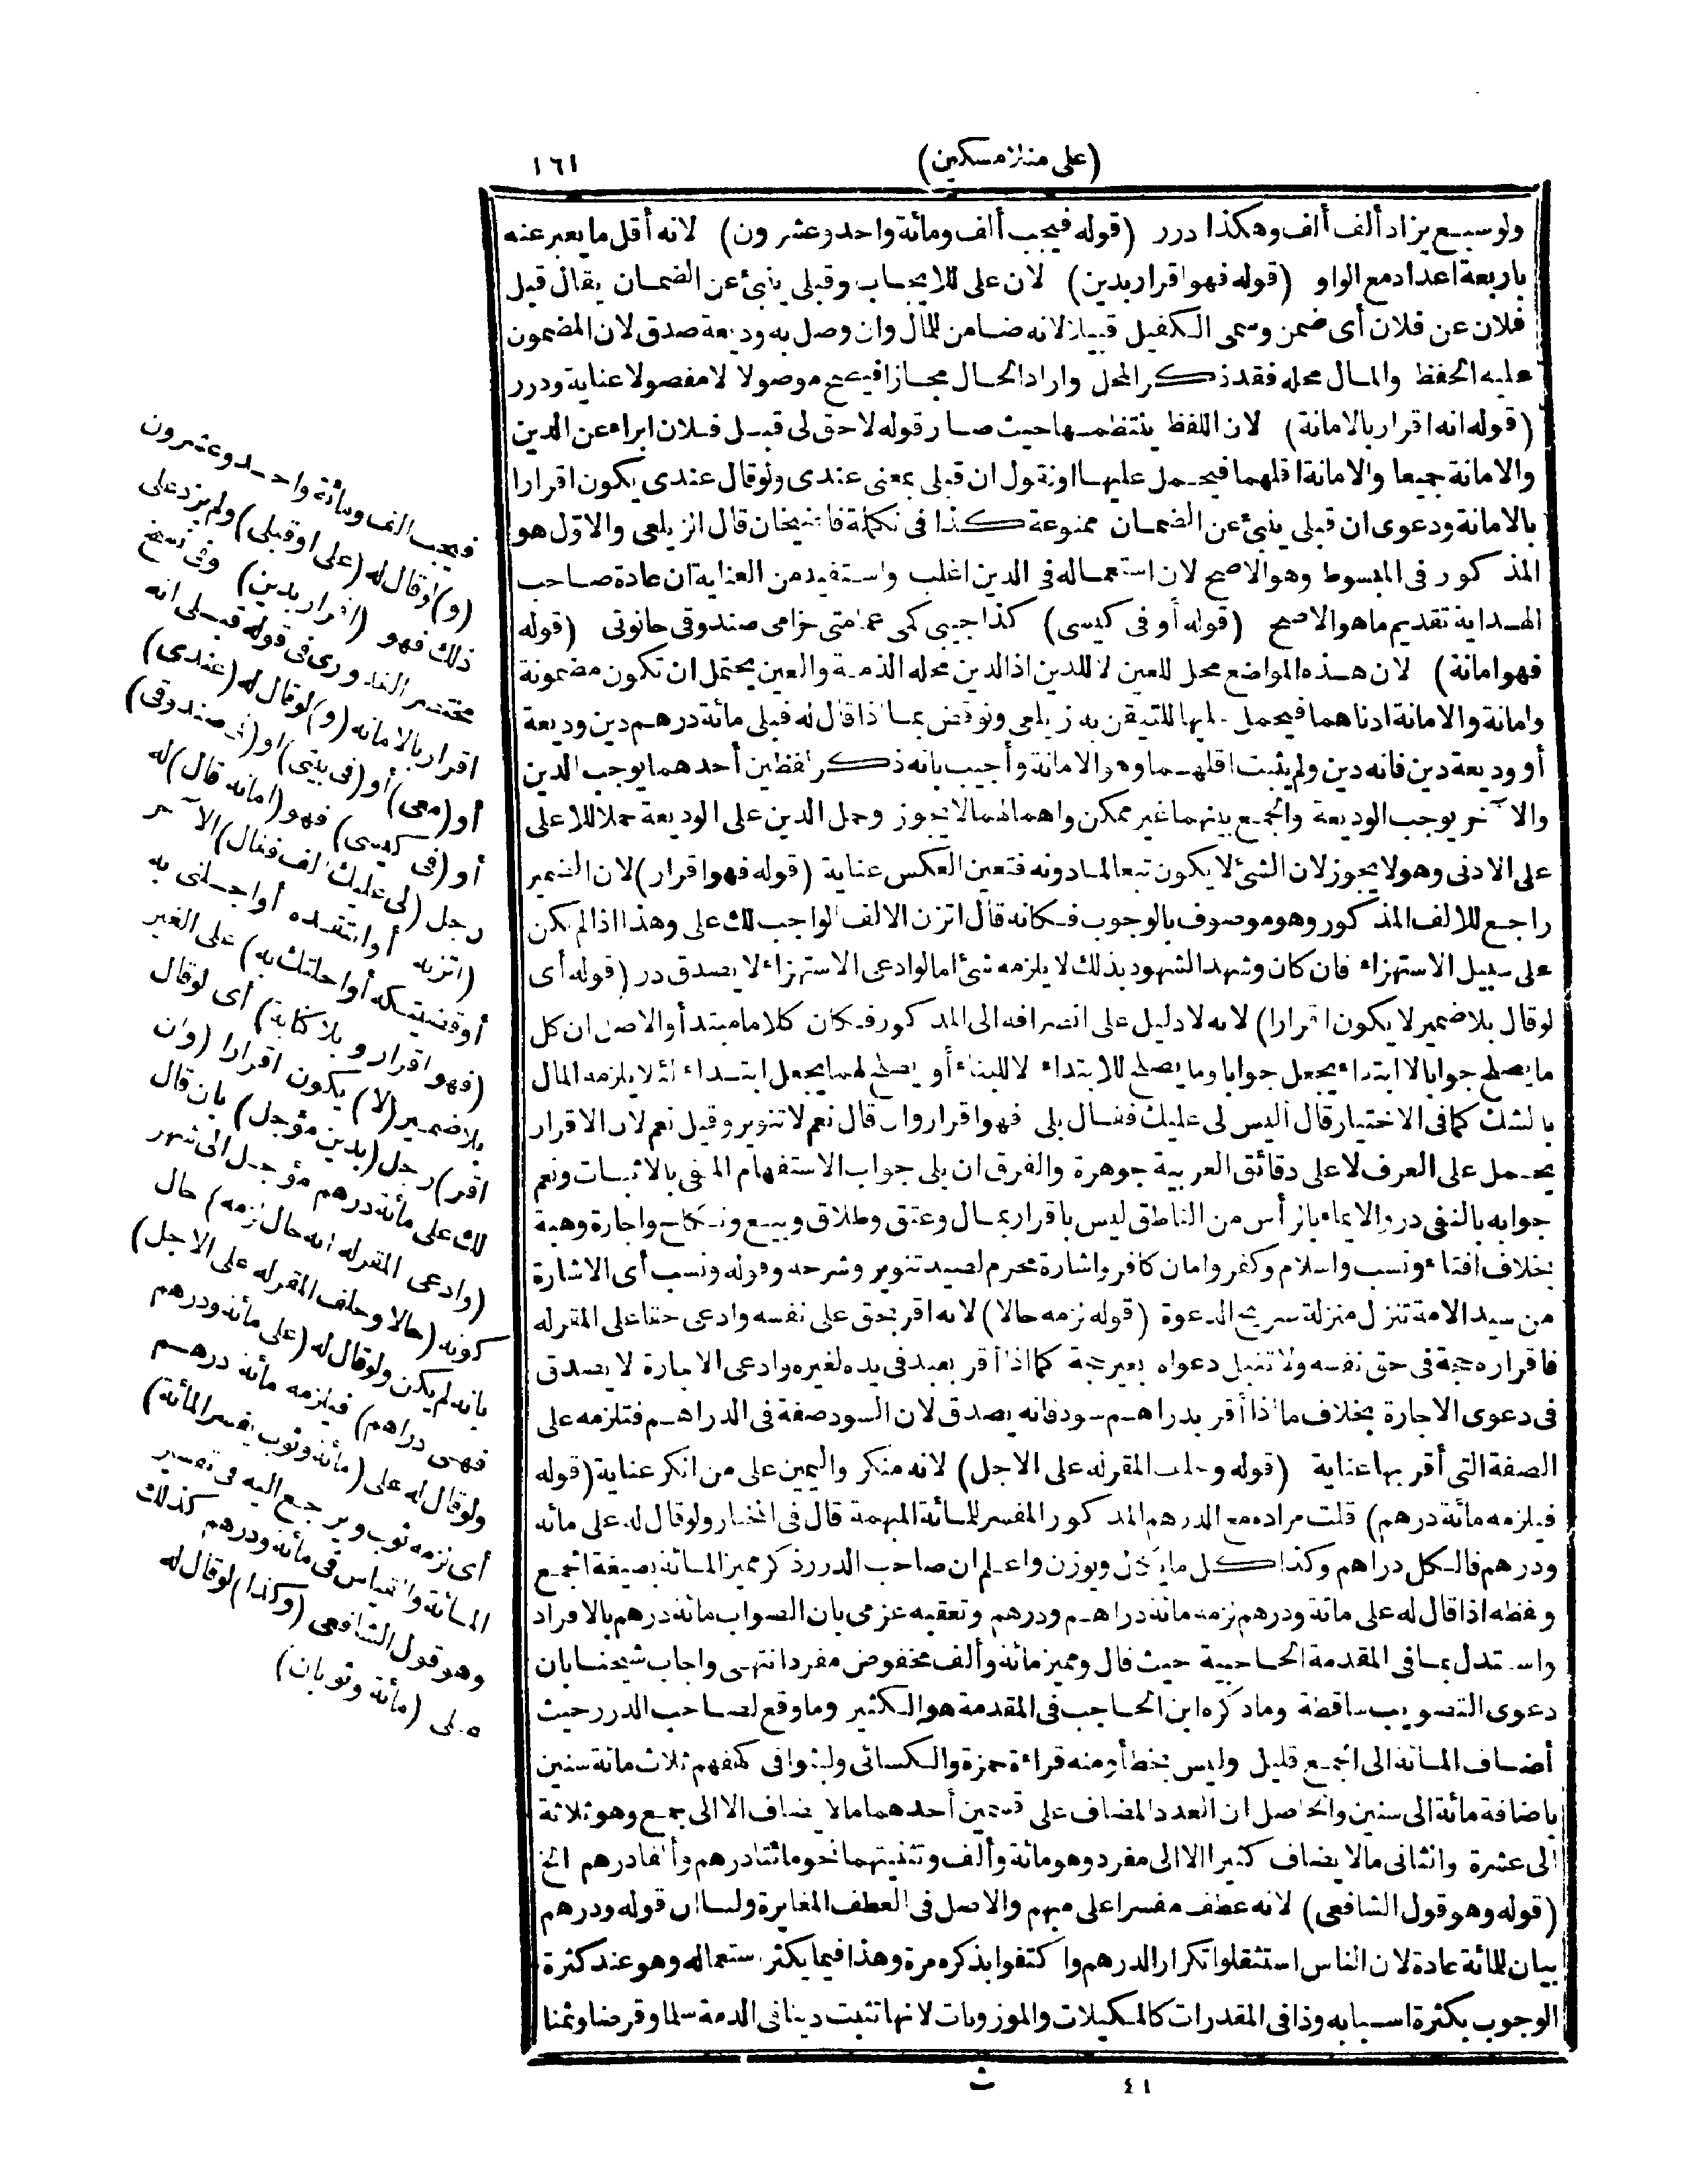 (على منلا مسكين)
١٦١
ولو سبع يزاد ألف ألف وهكذا درر (قوله فيجب ألف ومائة واحد وعشرون) لانه أقل ما يعبر عنه
باربعة اعداد مع الواو (قوله فهو اقرار بدين) لان على للايجاب وقبلى ينبئ عن الضمان يقال قبل
فلان عن فلان أى ضمن وسمى الكفيل قبيلا لانه ضامن للمال وان وصل به وديعة صدق لان المضمون
عليه الحفظ والمال محله فقد ذكر المحل واراد الحال مجازا فيصح موصولا لا مفصولا عناية ودرر
(قوله انه اقرار بالامانة) لان اللفظ ينتظمها حيث صار قوله لا حق لى قبل فلان ابراء عن الدين
والامانة جميعا والامانة اقلهما فيحمل عليها اونقول ان قبلى بمعنى عندى ولو قال عندى يكون اقرارا
بالامانة ودعوى ان قبلى ينبئ عن الضمان ممنوعة كذا فى تكملة قاضيخان قال الزيلعى والاوّل هو
المذكور فى المبسوط وهو الاصح لان استعماله فى الدين اغلب واستفيد من العناية ان عادة صاحب
الهداية تقديم ما هو الاصح (قوله أو فى كيسى) كذا جيبى كمى عمامتى خزامى صندوقى حانوتى (قوله
فهو امانة) لان هذه المواضع محل للعين لا للدين اذ الدين محله الذمة والعين يحتمل ان تكون مضمونة
وامانة والامانة ادناهما فيحمل عليها للتيقن به زيلعى ونوقض بما اذا قال له قبلى مائة درهم دين وديعة
أو وديعة دين فانه دين ولم يثبت اقلهما وهو الامانة وأجيب بانه ذكر لفظين أحدهما يوجب الدين
والآخر يوجب الوديعة والجمع بينهما غير ممكن واهمالهما لا يجوز وحمل الدين على الوديعة حملا للاعلى
على الادنى وهو لا يجوز لان الشئ لا يكون تبعا لما دونه فتعين العكس عناية (قوله فهو اقرار) لان الضمير
راجع للالف المذكور وهو موصوف بالوجوب فكانه قال اتزن الالف الواجب لك على وهذا اذا لم يكن
على سبيل الاستهزاء فان كان وشهد الشهود بذلك لا يلزمه شئ اما لو ادعى الاستهزاء لا يصدق در (قوله أى
لو قال بلا ضمير لا يكون اقرارا) لانه لا دليل على انصرافه الى المذكور فكان كلاما مبتدأ والاصل ان كل
ما يصلح جوابا لا ابتداء يجعل جوابا وما يصلح للابتداء لا للبناء أو يصلح لهما يجعل ابتداء لئلا يلزمه المال
بالشك كما فى الاختيار قال أليس لى عليك فقال بلى فهو اقرار وان قال نعم لا تنوير وقيل نعم لان الاقرار
يحمل على العرف لا على دقائق العربية جوهرة والفرق ان بلى جواب الاستفهام المنفى بالاثبات ونعم
جوابه بالنفى در والايماء بالرأس من الناطق ليس باقرار بمال وعتق وطلاق وبيع ونكاح واجارة وهبة
بخلاف افتاء ونسب واسلام وكفر وامان كافر واشارة محرم لصيد تنوير وشرحه وقوله ونسب أى الاشارة
من سيد الامة تنزل منزلة صريح الدعوة (قوله لزمه حالا) لانه اقر بحق على نفسه وادعى حقا على المقر له
فاقراره حجة فى حق نفسه ولا تقبل دعواه بغير حجة كما اذا أقر بعبد فى يده لغيره وادعى الاجارة لا يصدق
فى دعوى الاجارة بخلاف ما اذا أقر بدراهم سود فانه يصدق لان السود صفة فى الدراهم فتلزمه على
الصفة التى أقر بها عناية (قوله وحلف المقر له على الاجل) لانه منكر واليمين على من انكر عناية (قوله
فيلزمه مائة درهم) قلت مراده مع الدرهم المذكور المفسر للمائة المبهمة قال فى المختار ولو قال له على مائة
ودرهم فالكل دراهم وكذا كل ما يكال ويوزن واعلم ان صاحب الدرر ذكر مميز المائة بصيغة الجمع
ولفظه اذا قال له على مائة ودرهم لزمه مائة دراهم ودرهم وتعقبه عزمى بان الصواب مائة درهم بالافراد
واستدل بما فى المقدمة الحاجبية حيث قال ومميز مائة وألف مخفوض مفرد انتهى واجاب شيخنا بان
دعوى التصويب ساقطة وما ذكره ابن الحاجب فى المقدمة هو الكثير وما وقع لصاحب الدرر حيث
أضاف المائة الى الجمع قليل وليس بخطأ ومنه قراءة حمزة والكسائى ولبثوا فى كهفهم ثلاث مائة سنين
باضافة مائة الى سنين والحاصل ان العدد المضاف على قسمين أحدهما ما لا يضاف الا الى جمع وهو ثلاثة
الى عشرة والثانى ما لا يضاف كثيرا الا الى مفرد وهو مائة وألف وتثنيتهما نحو مائتا درهم وألفا درهم الخ
(قوله وهو قول الشافعى) لانه عطف مفسرا على مبهم والاصل فى العطف المغايرة ولنا ان قوله ودرهم
بيان للمائة عادة لان الناس استثقلوا تكرار الدرهم واكتفوا بذكره مرة وهذا فيما يكثر استعماله وهو عند كثرة
الوجوب بكثرة اسبابه وذا فى المقدرات كالمكيلات والموزونات لانها تثبت دينا فى الذمة سلما وقرضا وثمنا
فيجب الف ومائة واحد وعشرون
(و) لو قال له (على او قبلى) ولم يزد على
ذلك فهو (اقرار بدين) وفى نسخ
مختصر القدورى فى قوله قبلى انه
اقرار بالامانة (و) لو قال له (عندى)
أو (معى) أو (فى بيتى) او (فى صندوقى)
أو (فى كيسى) فهو (امانة قال) له
رجل (لى عليك الف فقال) الآخر
(اتزنه أو انتقده أو اجلنى به
أو قضيتكه أو احلتك به) على الغير
(فهو اقرار و بلا كناية) أى لو قال
بلا ضمير (لا) يكون اقرارا (وان
اقر) رجل (بدين مؤجل) بان قال
لك على مائة درهم مؤجل الى شهر
(وادعى المقر له انه حال لزمه) حال
كونه (حالا وحلف المقر له على الاجل)
بانه لم يكن ولو قال له (على مائة ودرهم
فهى دراهم) فيلزمه مائة درهم
ولو قال له على (مائة وثوب يفسر المائة)
أى لزمه ثوب ويرجع اليه فى تفسير
المائة والقياس فى مائة ودرهم كذلك
وهو قول الشافعى (وكذا) لو قال له
على (مائة وثوبان)
٤١
ث